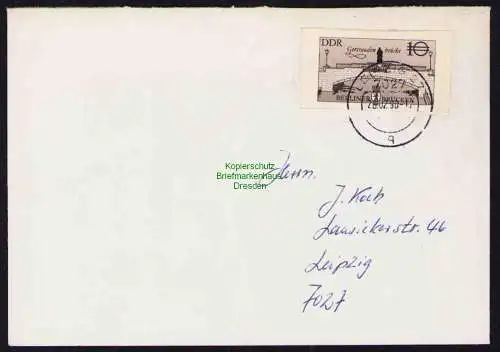 DDR
10
Gertraudenbrücke
BERLINER BRÜCKEN
LEIPZIG
7027
28.02.90-17
q
Kopierschutz
Briefmarkenhaus
Dresden
Herrn
J. Koch
Lausickerstr. 46
Leipzig
7027